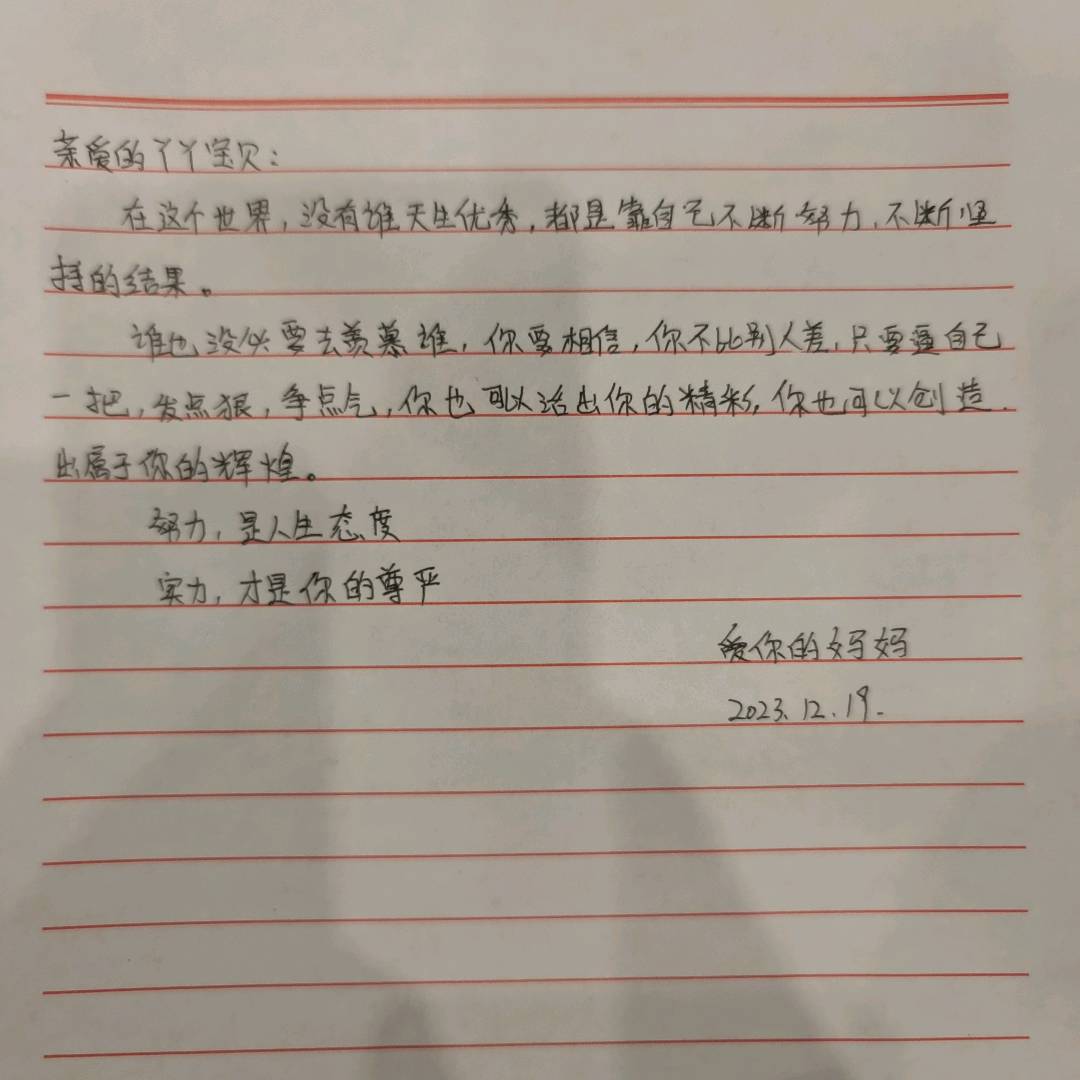 亲爱的丫丫宝贝：
在这个世界，没有谁天生优秀，都是靠自己不断努力，不断坚
持的结果。
谁也没必要去羡慕谁，你要相信，你不比别人差，只要逼自己
一把，发点狠，争点气，你也可以活出你的精彩，你也可以创造
出属于你的辉煌。
努力，是人生态度
实力，才是你的尊严
爱你的妈妈
2023.12.19.